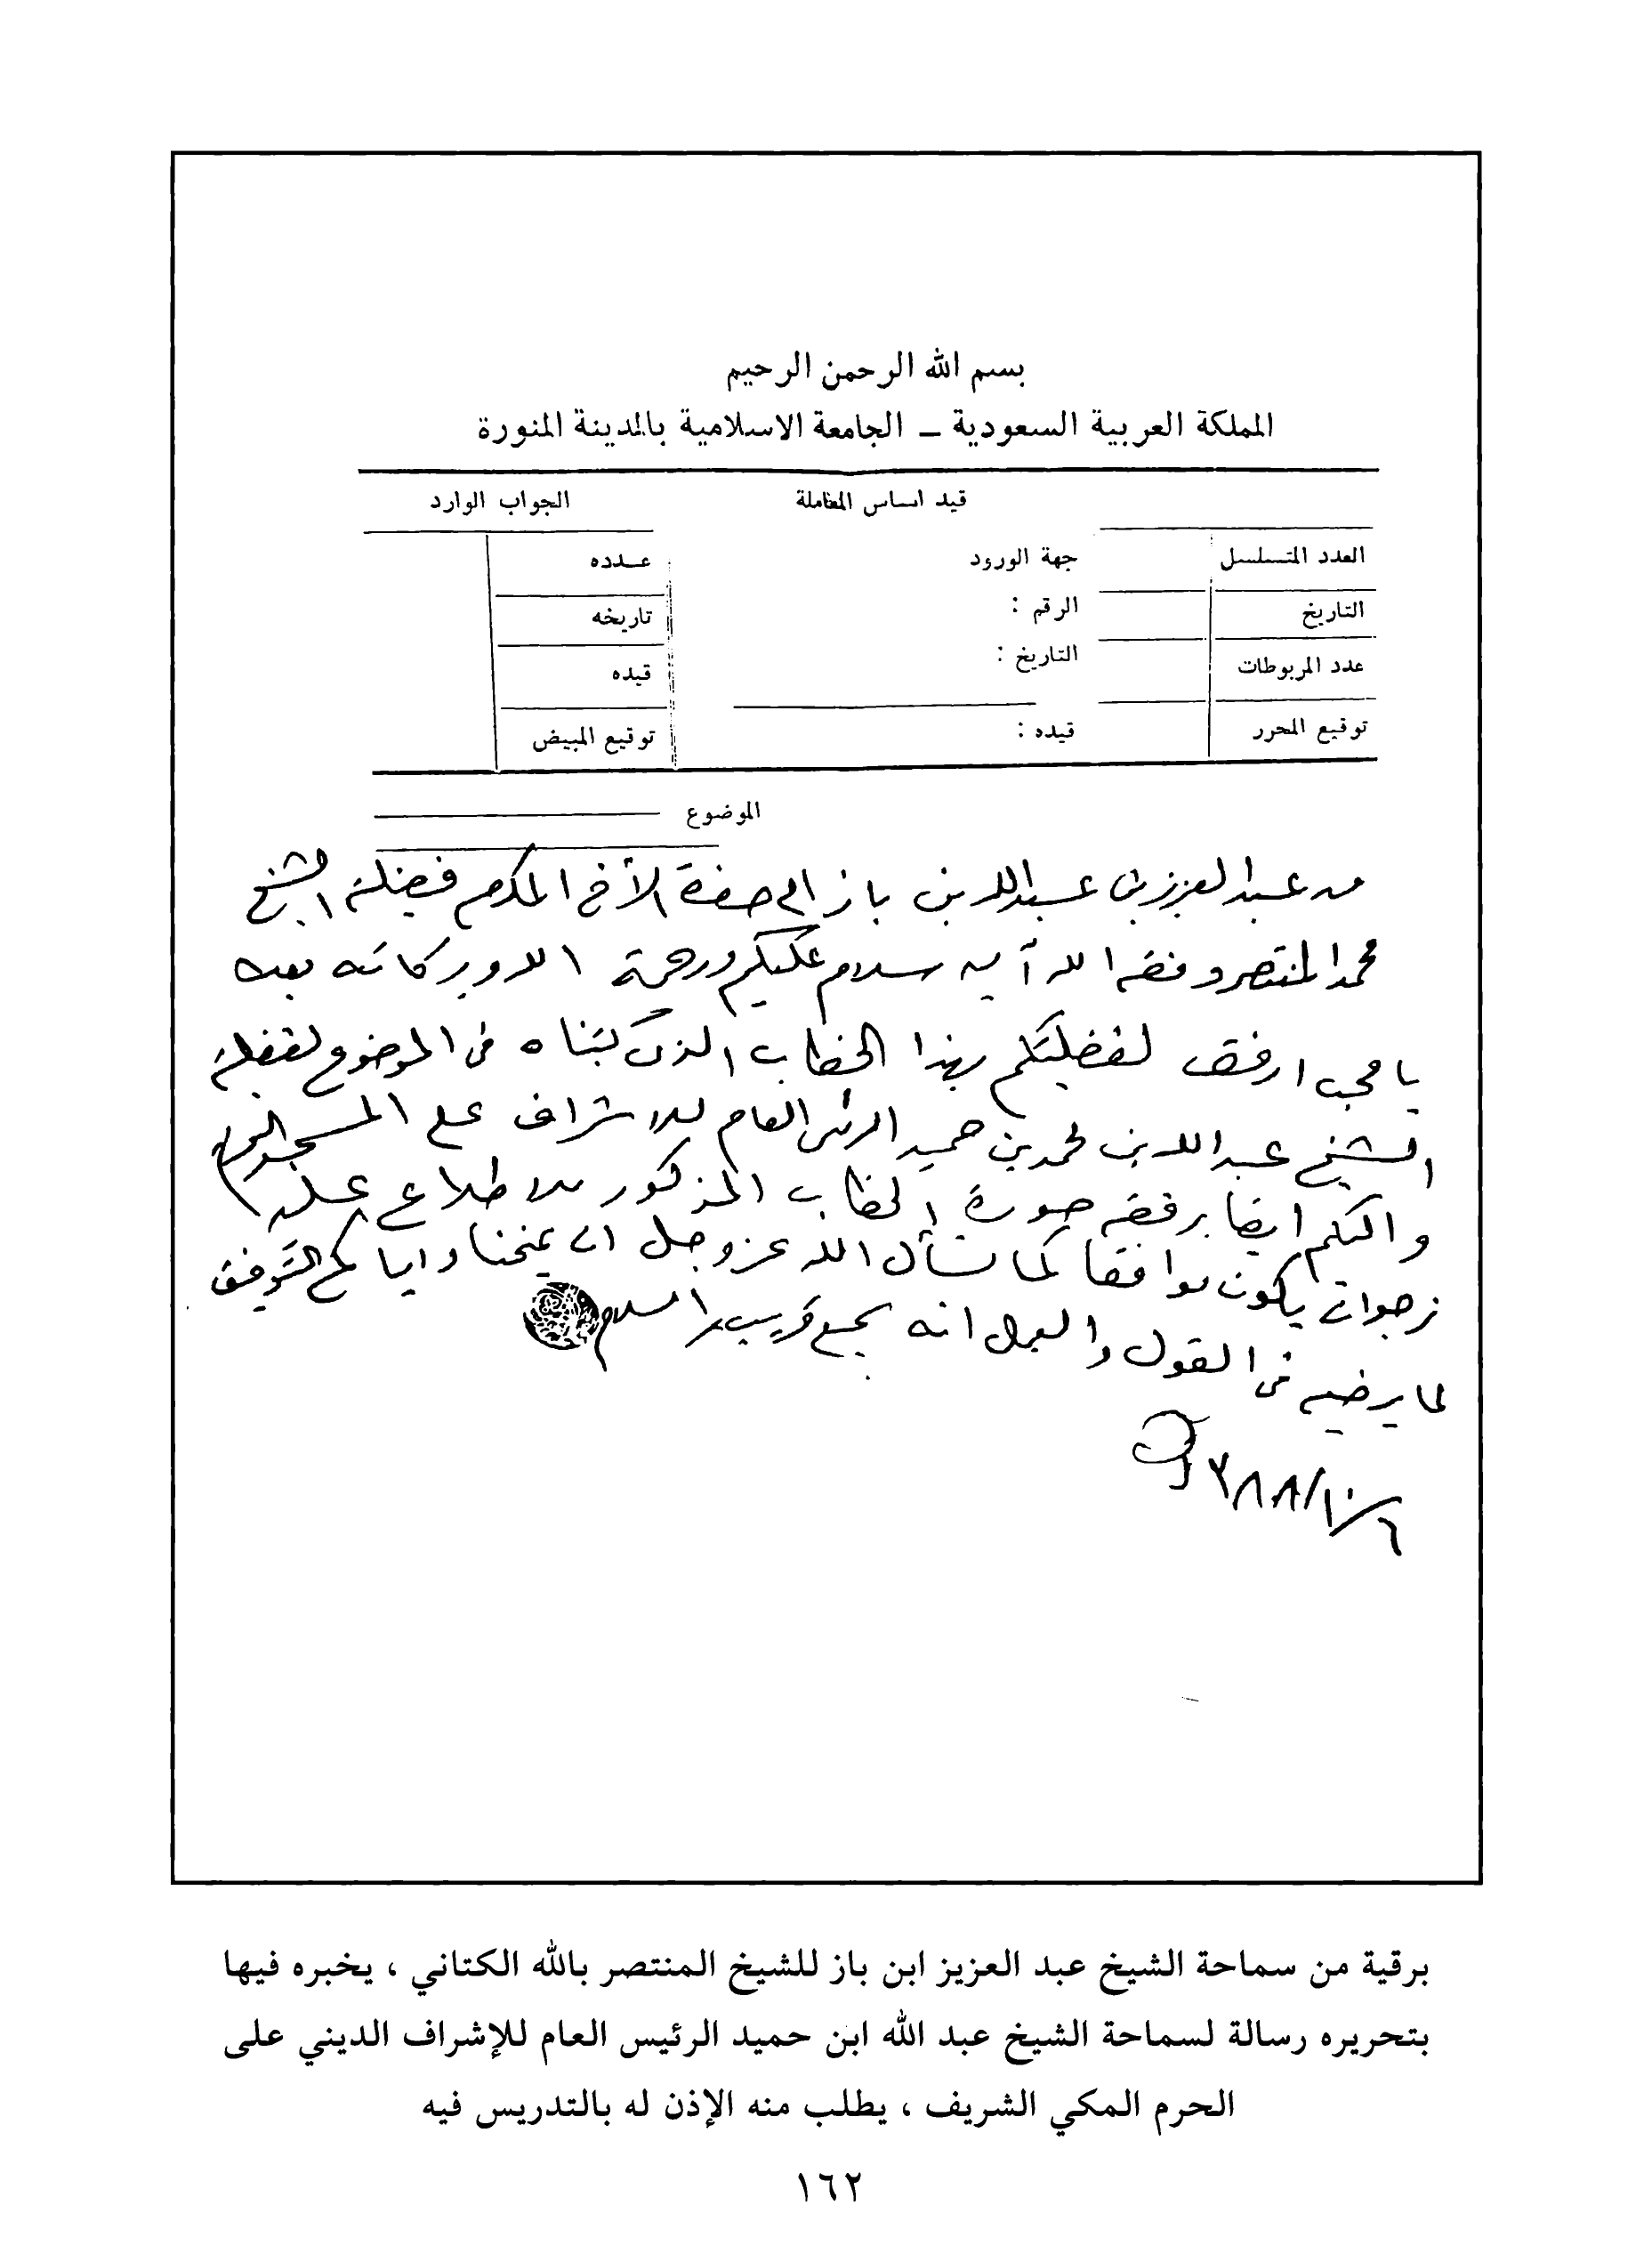 بسم الله الرحمن الرحيم
المملكة العربية السعودية – الجامعة الاسلامية بالمدينة المنورة
قيد اساس المعاملة
الجواب الوارد
العدد المتسلسل
جهة الورود
عدده
التاريخ
الرقم :
تاريخه
عدد المربوطات
التاريخ :
قيده
توقيع المحرر
قيده :
توقيع المبيض
الموضوع
من عبد العزيز بن عبد الله بن باز الى حضرة الأخ المكرم فضيلة الشيخ
محمد المنتصر وفقه الله آمين سلام عليكم ورحمة الله وبركاته بعده
يا محب ارفق لفضيلتكم بهذا الخطاب الذي كتبناه في الموضوع لفضيلة
الشيخ عبد الله بن محمد بن حميد الرئيس العام للاشراف على المسجد الحرام
واليكم ايضا برفقه صورة الخطاب المذكور للاطلاع عليه
نرجو ان يكون موافقا كما نسأل الله عز وجل ان يمنحنا واياكم التوفيق
لما يرضيه في القول والعمل انه سميع قريب والسلام
٦/١٠/٣٨٨
برقية من سماحة الشيخ عبد العزيز ابن باز للشيخ المنتصر بالله الكتاني ، يخبره فيها
بتحريره رسالة لسماحة الشيخ عبد الله ابن حميد الرئيس العام للإشراف الديني على
الحرم المكي الشريف ، يطلب منه الإذن له بالتدريس فيه
١٦٢